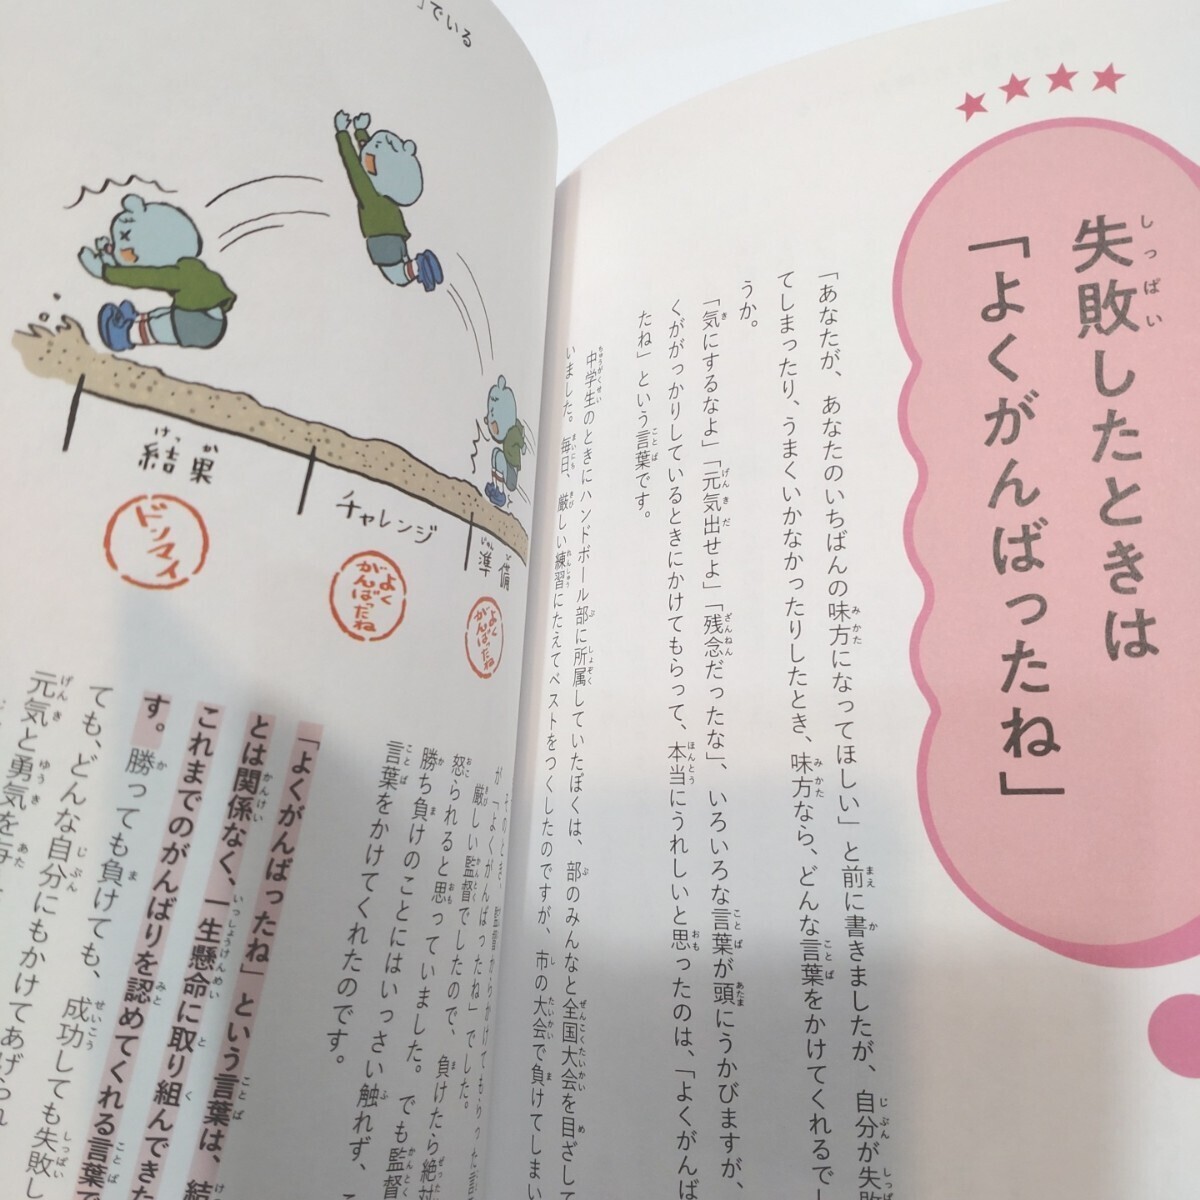 失敗したときは
しっぱい
「よくがんばったね」
「あなたが、あなたのいちばんの味方になってほしい」と前に書きましたが、自分が失敗
てしまったり、うまくいかなかったりしたとき、味方なら、どんな言葉をかけてくれるでし
うか。
「気にするなよ」「元気出せよ」「残念だったな」、いろいろな言葉が頭にうかびますが、
くががっかりしているときにかけてもらって、本当にうれしいと思ったのは、「よくがんば
たね」という言葉です。
中学生のときにハンドボール部に所属していたぼくは、部のみんなと全国大会を目ざして
いました。毎日、厳しい練習にたえてベストをつくしたのですが、市の大会で負けてしまい
」でいる
結果
けっか
チャレンジ
準備
じゅんび
ドンマイ
よくがんばったね
よくがんばったね
そのとき、監督からかけてもらった言
が「よくがんばったね」でした。
厳しい監督でしたので、負けたら絶対
怒られると思っていました。でも監督
勝ち負けのことにはいっさい触れず、
言葉をかけてくれたのです。
「よくがんばったね」という言葉は、結
とは関係なく、一生懸命に取り組んできた
これまでのがんばりを認めてくれる言葉で
す。勝っても負けても、成功しても失敗し
ても、どんな自分にもかけてあげられ
元気と勇気を与